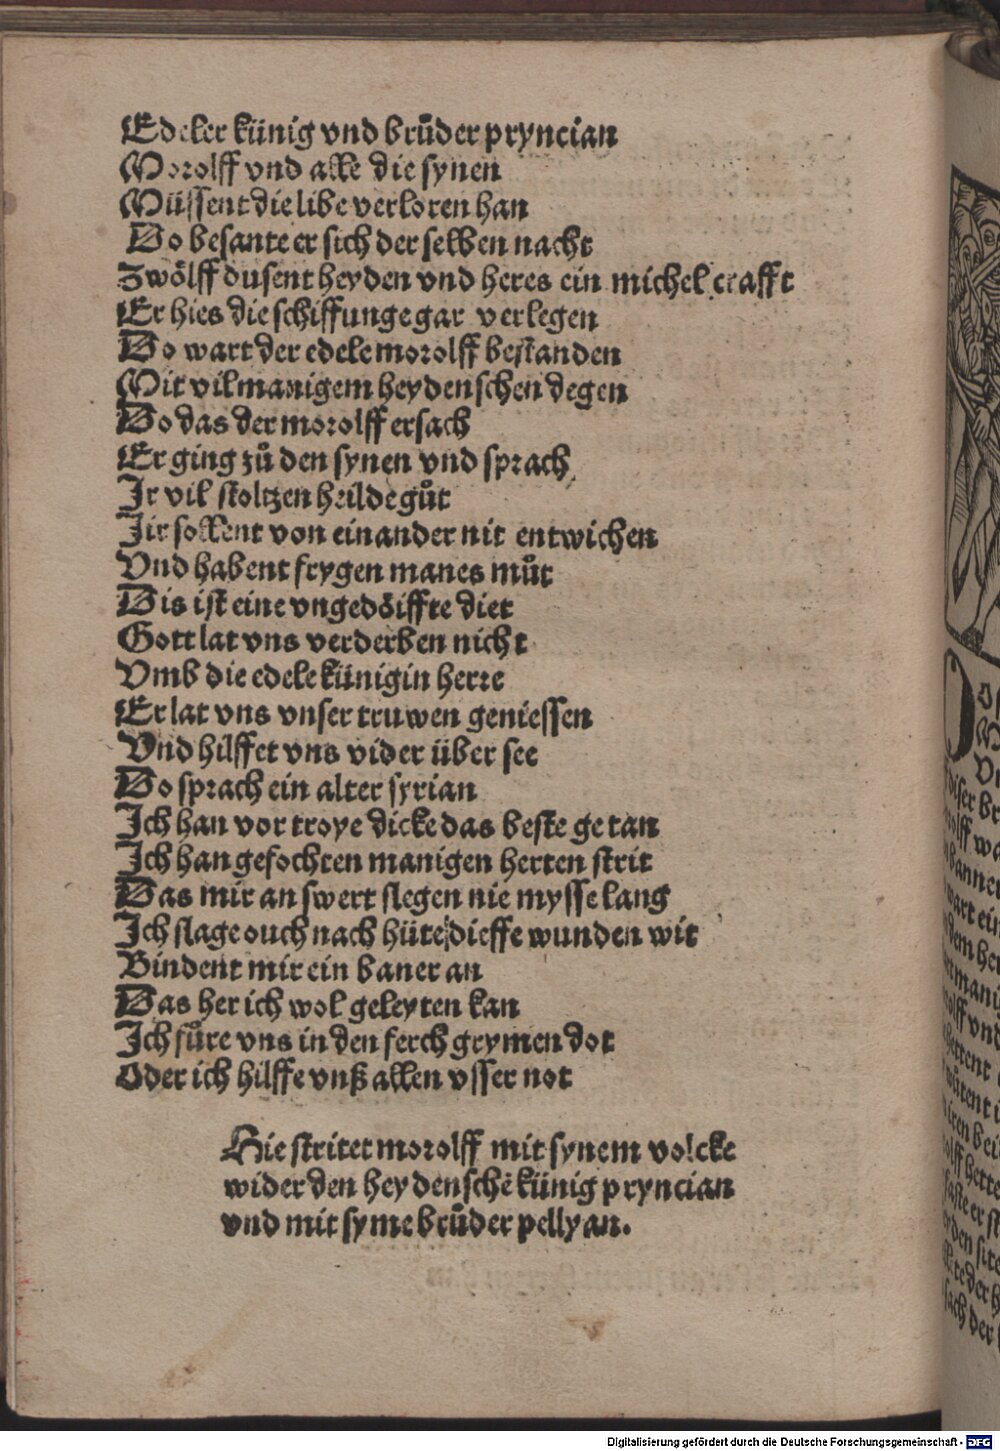 Edeler künig vnd brůder pryncian
Morolff vnd alle die synen
Müssent die libe verloren han
Do besante er sich der selben nacht
Zwölff dusent heyden vnd heres ein michel crafft
Er hies die schiffunge gar verlegen
Do wart der edele morolff bestanden
Mit vil manigem heydenschen degen
Do das der morolff ersach
Er ging zů den synen vnd sprach
Ir vil stoltzen helde gůt
Jir sollent von einander nit entwichen
Vnd habent frygen manes můt
Dis ist eine vngedöiffte diet
Gott lat vns verderben nicht
Vmb die edele künigin herre
Er lat vns vnser truwen geniessen
Vnd hilffet vns vider über see
Do sprach ein alter syrian
Ich han vor troye dicke das beste getan
Ich han gefochten manigen herten strit
Das mir an swert slegen nie mysselang
Ich slage ouch nach hüte dieffe wunden wit
Bindent mir ein baner an
Das her ich wol geleyten kan
Ich fůre vns in den ferch grymen dot
Oder ich hilffe vnß allen vsser not
Hie stritet morolff mit synem volcke
wider den heydenschē künig pryncian
vnd mit syme brůder pellyan.
Digitalisierung gefördert durch die Deutsche Forschungsgemeinschaft - DFG